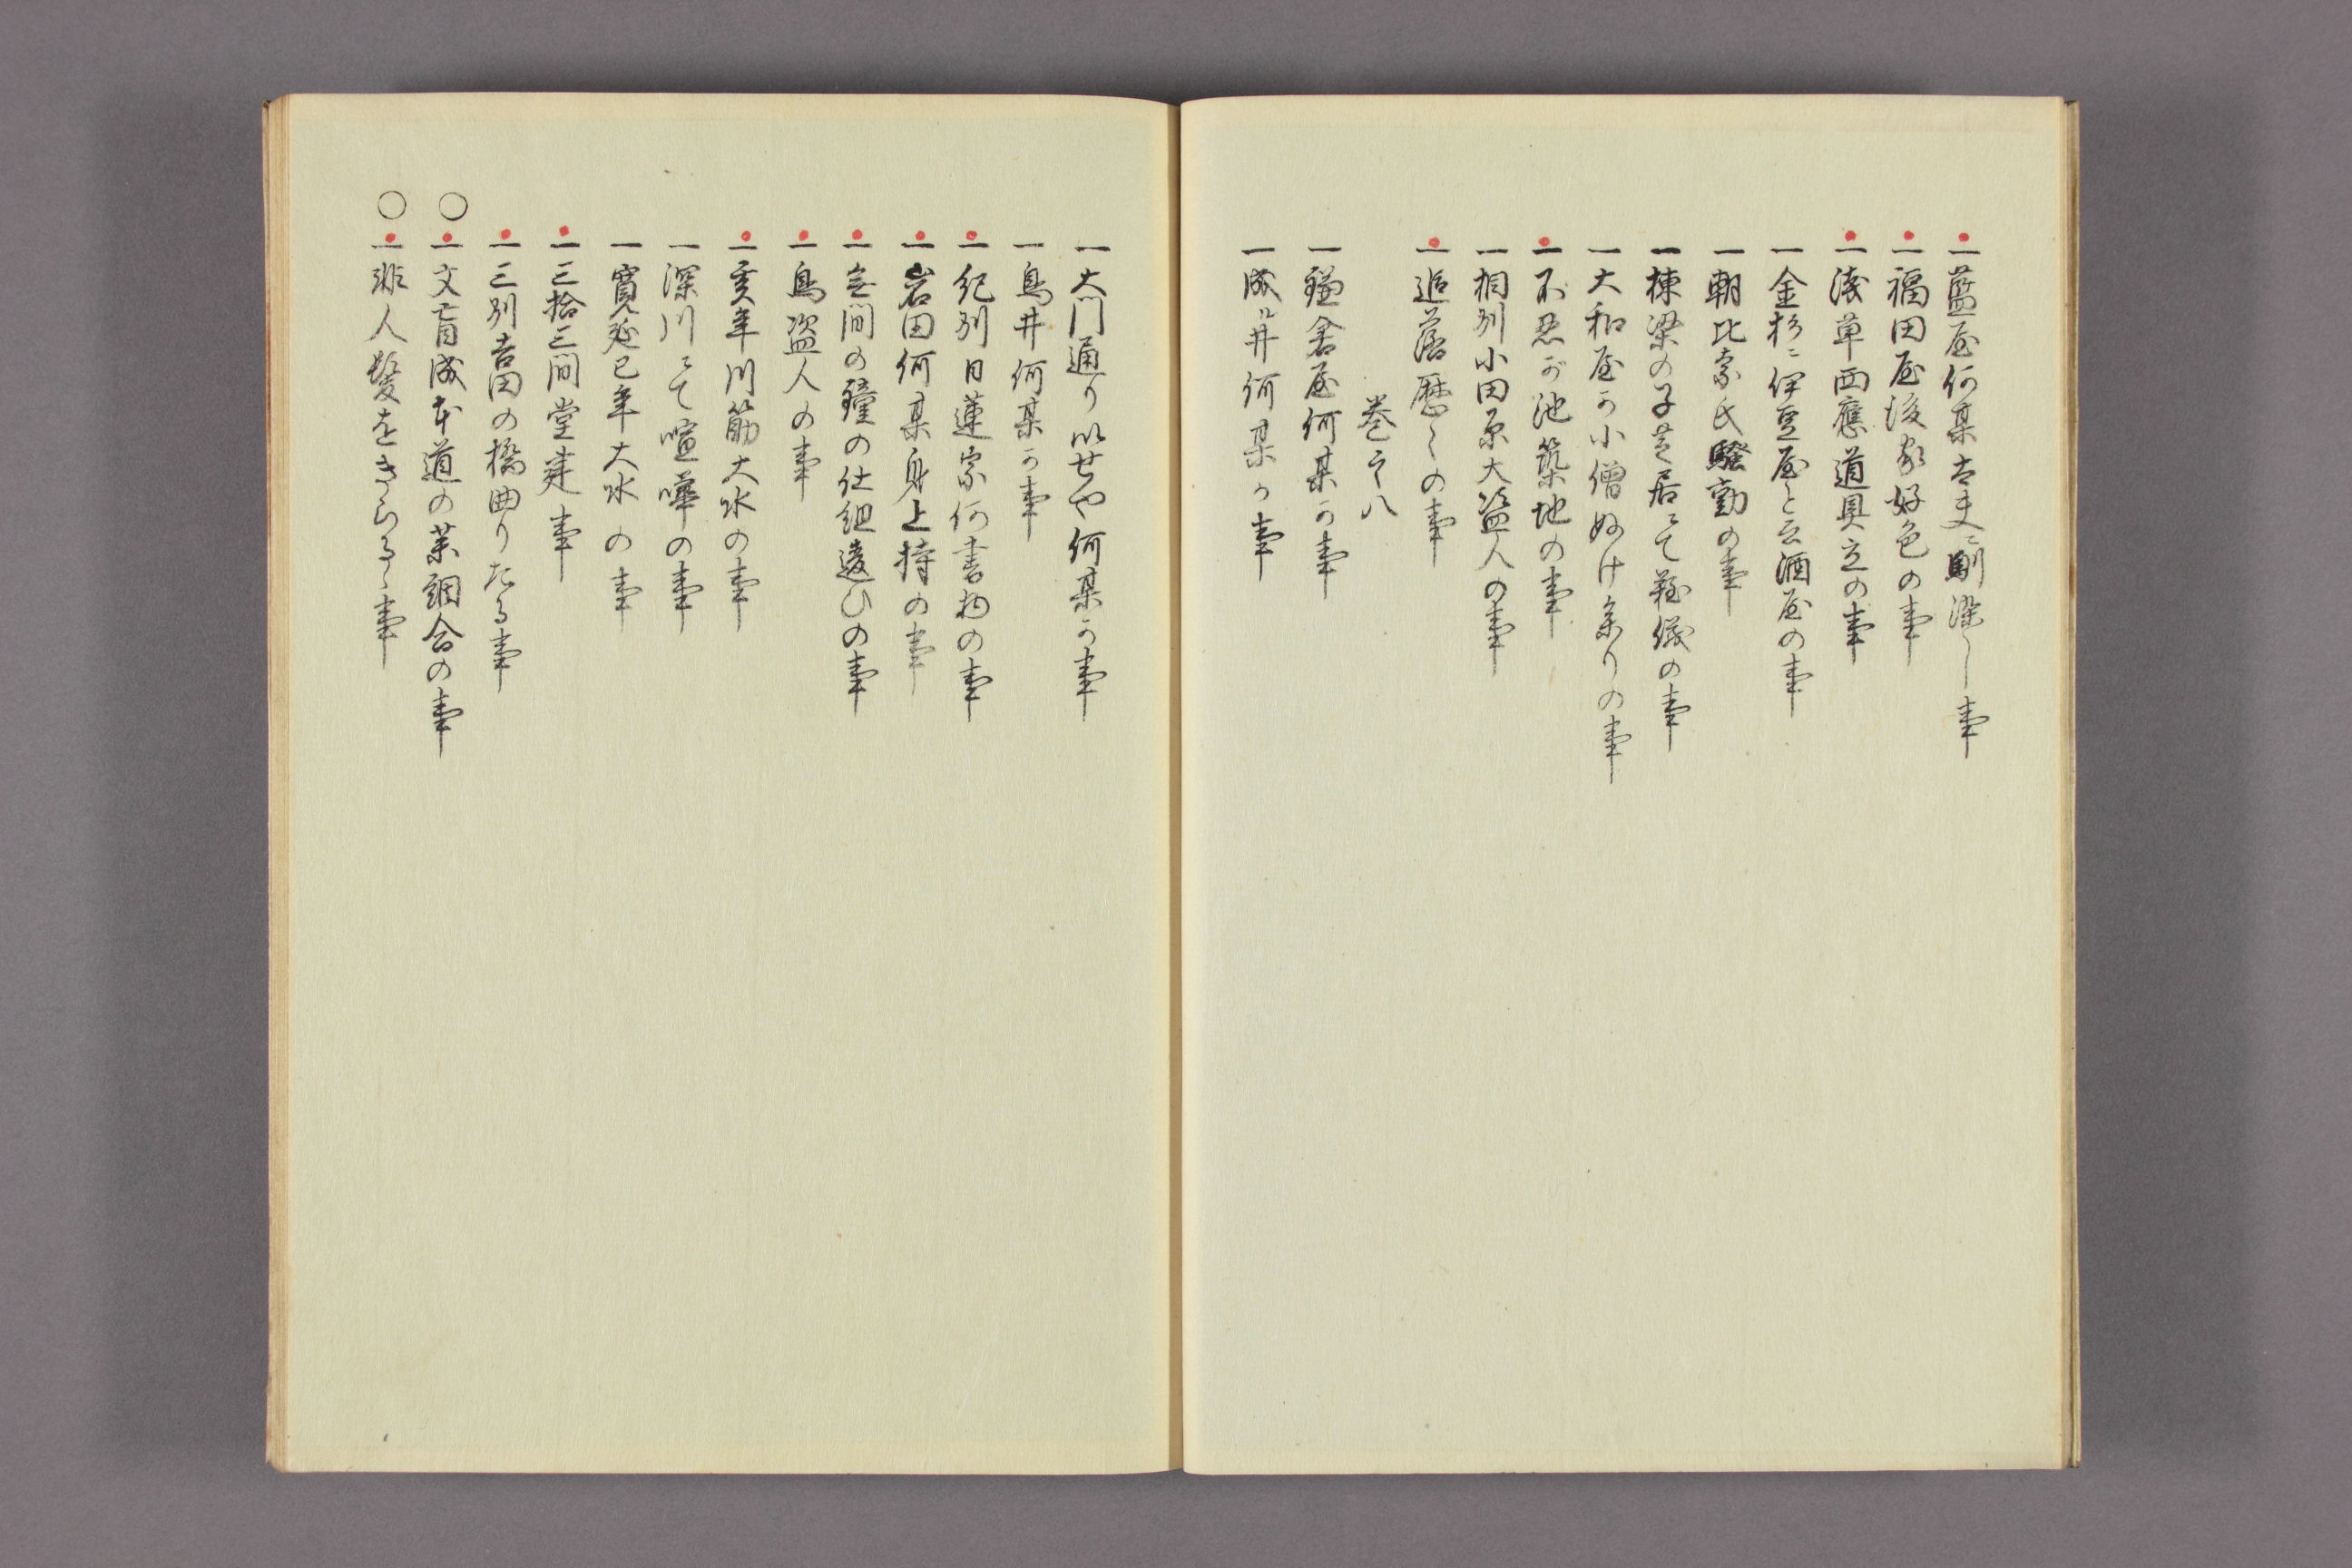 一藍屋何某太夫ニ馴染し事
一福田屋後家好色の事
一淺草西應道具立の事
一金杉ニ伊豆屋と云酒屋の事
一朝比奈氏騒動の事
一棟梁の子芝居ニて難儀の事
一大和屋か小僧ぬけ参りの事
一不忍が池築地の事
一相刕小田原大盗人の事
一追落歴々の事
巻之八
一鎌倉屋何某か事
一成井何某か事
一大門通りいせや何某か事
一鳥井何某か事
一紀刕日蓮宗何書物の事
一岩田何某身上持の事
一無間の鐘の仕組違ひの事
一鳥盗人の事
一亥年川筋大水の事
一深川ニて喧嘩の事
一寛延巳年大水の事
一三拾三間堂建事
一三刕吉田の橋曲りたる事
〇一文盲成本道の薬調合の事
〇一非人髪をきらるゝ事